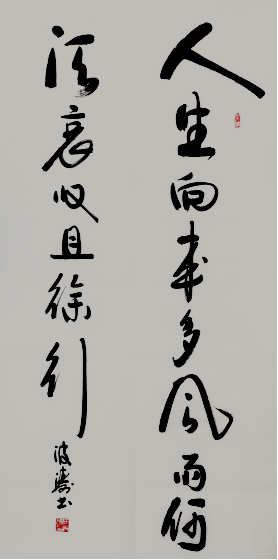 人生向来多风雨何
须哀叹且徐行
波涛书